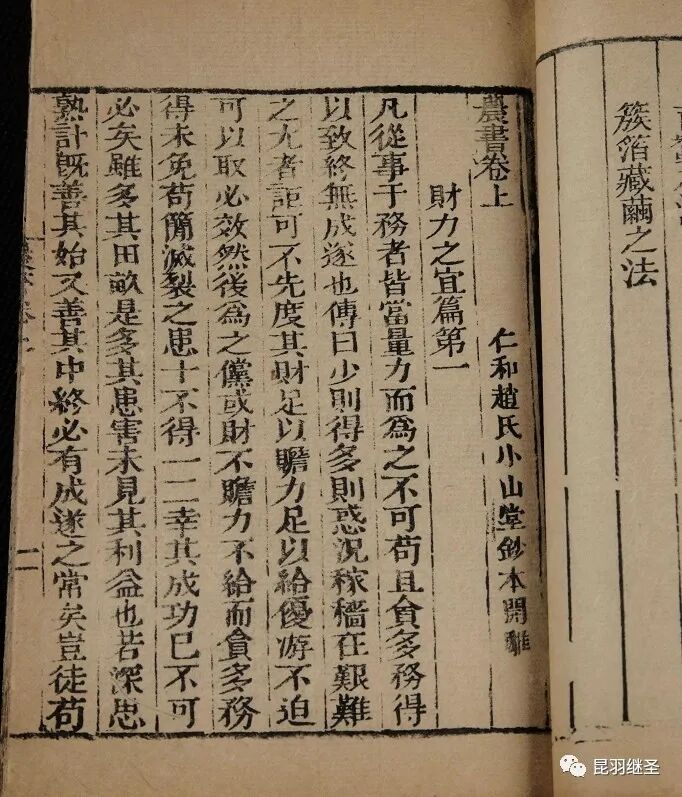 簇箔藏繭之法
農書卷上 仁和趙氏小山堂鈔本開雕
財力之宜篇第一
凡從事于務者皆當量力而為之不可苟且貪多務得
以致終無成遂也傳曰少則得多則惑況稼穡在艱難
之尤者詎可不先度其財足以贍力足以給優游不迫
可以取必效然後為之儻或財不贍力不給而貪多務
得未免苟簡滅裂之患十不得一二幸其成功已不可
必矣雖多其田畝是多其患害未見其利益也若深思
熟計既善其始又善其中終必有成遂之常矣豈徒苟
二
昆羽继圣